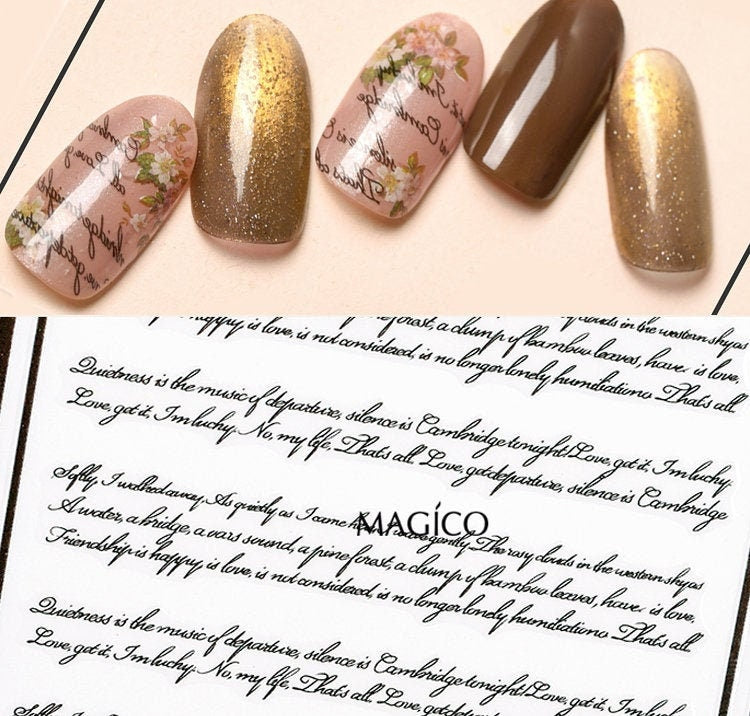 Cambridge
That's al
happy, is love, is not considered, is no longer lonely, humiliationo That's all.
pine forest, a clump of bamboo leaves, have is love,
clouds in the western sky as
Quietness is the music of departure, silence is Cambridge tonight! Love, got it, I'm lucky.
Love, got it, I'm lucky. No, my life, That's all. Love, got departure, silence is Cambridge
Softly, I walked away, As quietly as I came gently. The rosy clouds in the western sky as
MAGÍCO
A water, a bridge, a vars sound, a pine forest, a clump of bamboo leaves, have is love,
Friendship is happy, is love, is not considered, is no longer lonely, humiliationo That's all.
Quietness is the music of departure, silence is Cambridge tonight! Love, got it, I'm lucky.
Love, got it, I'm lucky. No, my life, That's all. Love, got departure
Softly, I